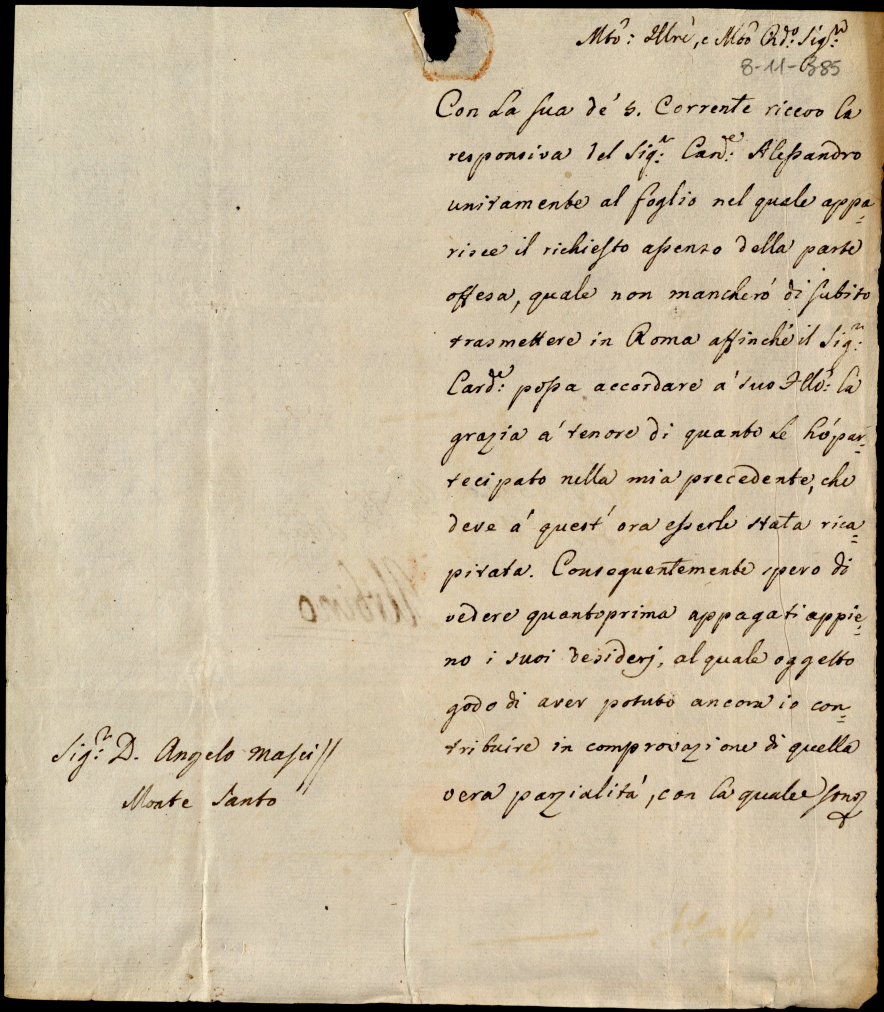 Mto: Illre, e Mto Rdo: Sigr:
8-11-B85
Con la sua de' 5. Corrente ricevo la
responsiva del Sigr: Carde: Alessandro
unitamente al foglio nel quale appa=
risce il richiesto assenso della parte
offesa, quale non mancheró di subito
trasmettere in Roma affinché il Sigr:
Carde: possa accordare a' suo Illo: la
grazia a' tenore di quanto le hó par=
tecipato nella mia precedente, che
deve á quest' ora esserle stata rica=
pitata. Conseguentemente spero di
vedere quantoprima appagati appie=
no i suoi desiderj, al quale oggetto
godo di aver potuto ancora io con=
tribuire in comprovazione di quella
vera parzialitá, con la quale sono
Sigr: D. Angelo Masci //
Monte Santo